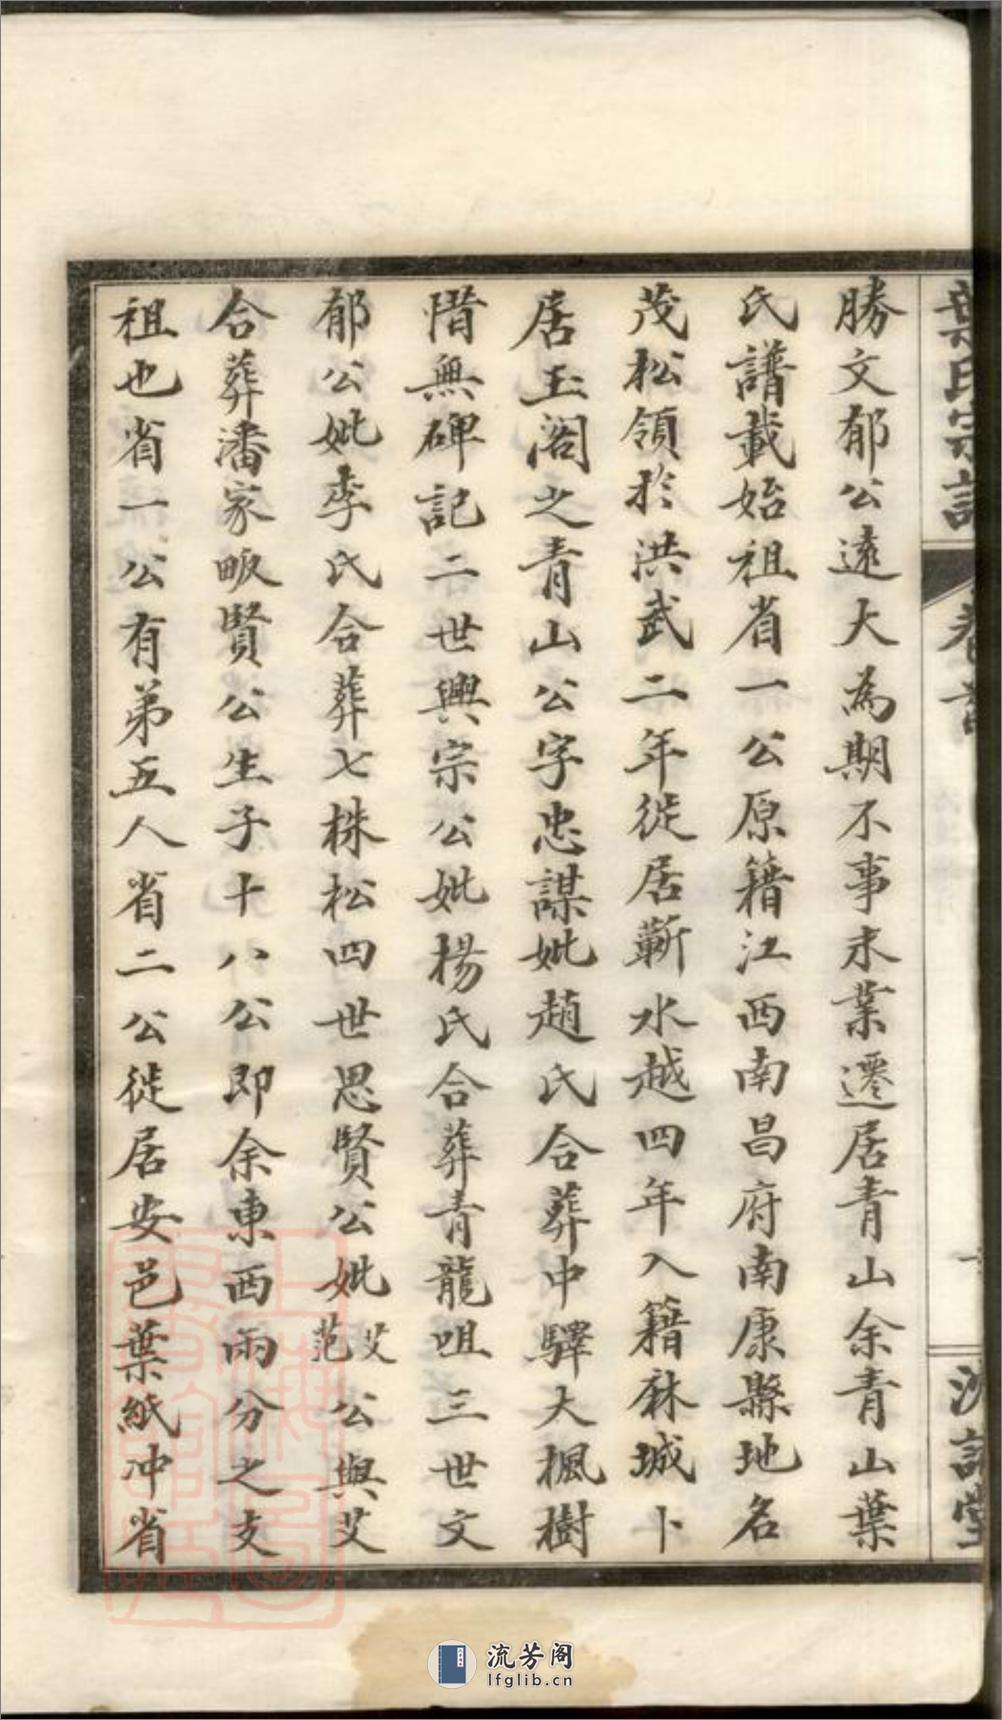 葉氏宗譜
卷首
勝文郁公遠大為期不事末業遷居青山余青山葉
氏譜載始祖省一公原籍江西南昌府南康縣地名
茂松領於洪武二年徙居蘄水越四年入籍麻城卜
居玉閣之青山公字忠謀妣趙氏合葬中驛大楓樹
惜無碑記二世興宗公妣楊氏合葬青龍咀三世文
郁公妣李氏合葬七株松四世思賢公妣艾范公與艾
合葬潘家畈賢公生子十八公即余東西兩分之支
祖也省一公有弟五人省二公徙居安邑葉紙冲省
流芳阁
lfglib.cn